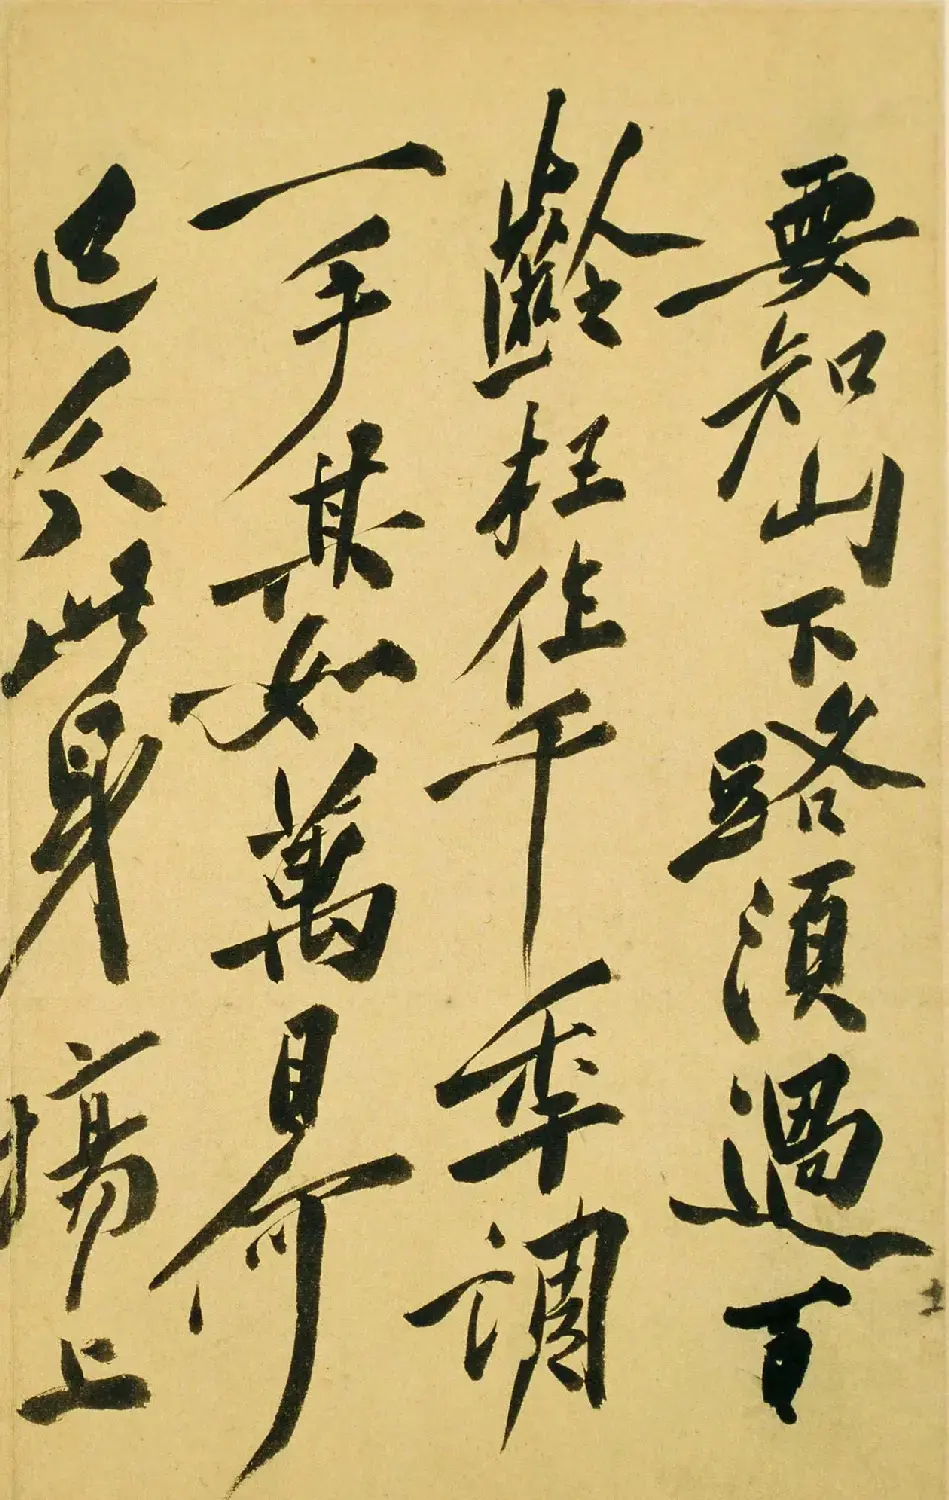 要知山下路須過百
齡枉作千年調
一手其如萬目何
已分此身塲上